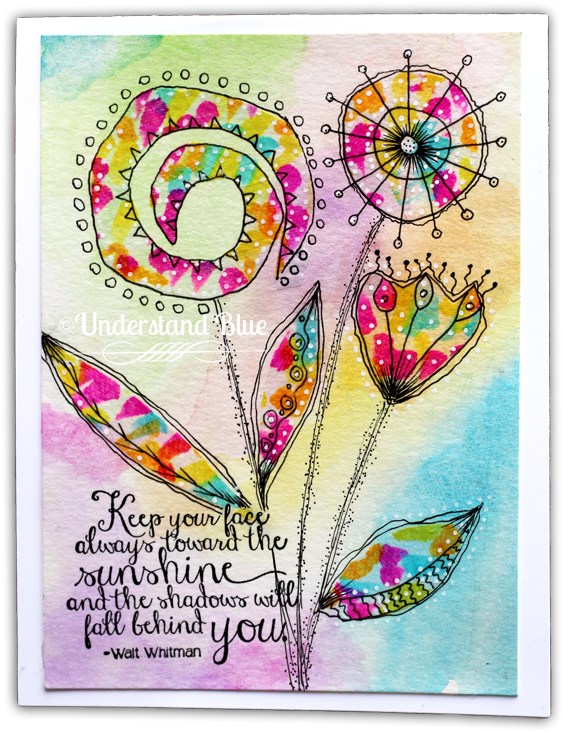 ©Understand Blue
Keep your face
always toward the
sunshine
and the shadows will
fall behind you.
-Walt Whitman